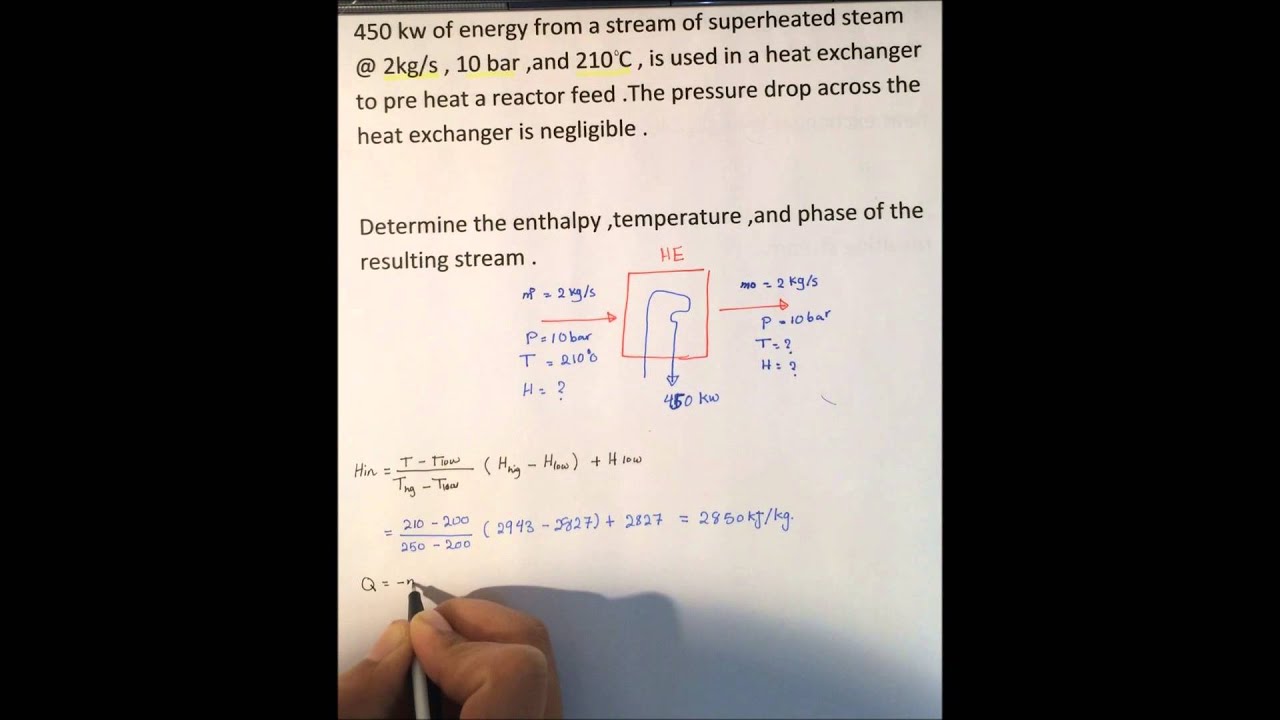 450 kw of energy from a stream of superheated steam
@ 2kg/s , 10 bar ,and 210°C , is used in a heat exchanger
to pre heat a reactor feed .The pressure drop across the
heat exchanger is negligible .
Determine the enthalpy ,temperature ,and phase of the
resulting stream .
HE
= 2 kg/s
mo = 2 kg/s
P = 10 bar
T = 210°
H = ?
P = 10 bar
T = ?
H = ?
450 kw
Hin = T - Tlow / Thg - Tlow ( Hhig - Hlow ) + Hlow
= 210 - 200 / 250 - 200 ( 2943 - 2827 ) + 2827 = 2850 kJ/kg.
Q = -